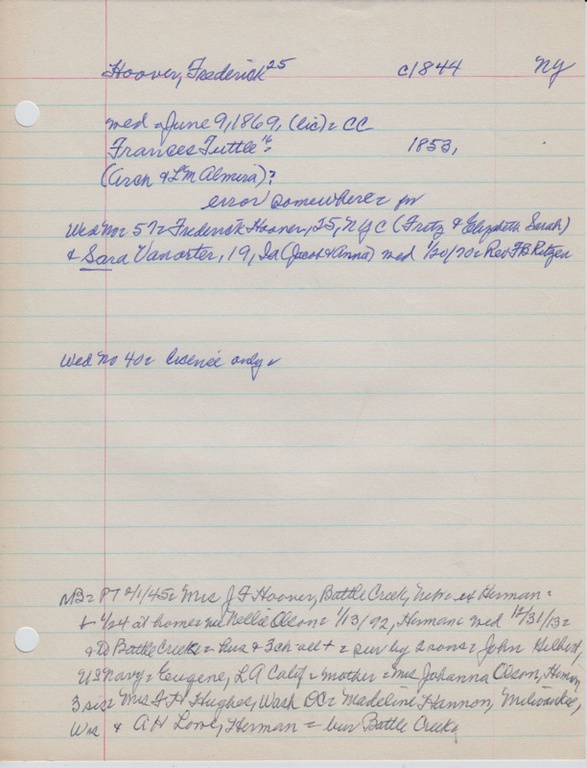 Hoover, Frederick 25 c1844 NY
med = June 9, 1869, (lic) = CC
Frances Tuttle 16 = 1853,
(Aron & L M Almira)?
error somewhere =
Wed No = 57 = Frederick Hoover, 25, NYC (Fritz & Elizabeth Sarah)
& Sara Vanorter, 19, Ia (Jacob & Anna) med 1/20/70 = Rev FB Ritzen
Wed No 40 = licence only =
NB = PT 2/1/45 = Mrs J F Hoover, Battle Creek, Nebr = ex Herman =
+ 1/24 at home = nee Nellie Olson = 1/13/92, Herman = med 12/31/13 =
& to Battle Creek = hus & 3 ch all + = sur by 2 sons = John Hilbert,
US Navy = Eugene, LA Calif = mother = Mrs Johanna Olson, Herman,
3 sis = Mrs F H Hughes, Wash DC = Madeline Hannon, Milwaukee,
Wis & A H Lowe, Herman = bur Battle Creek